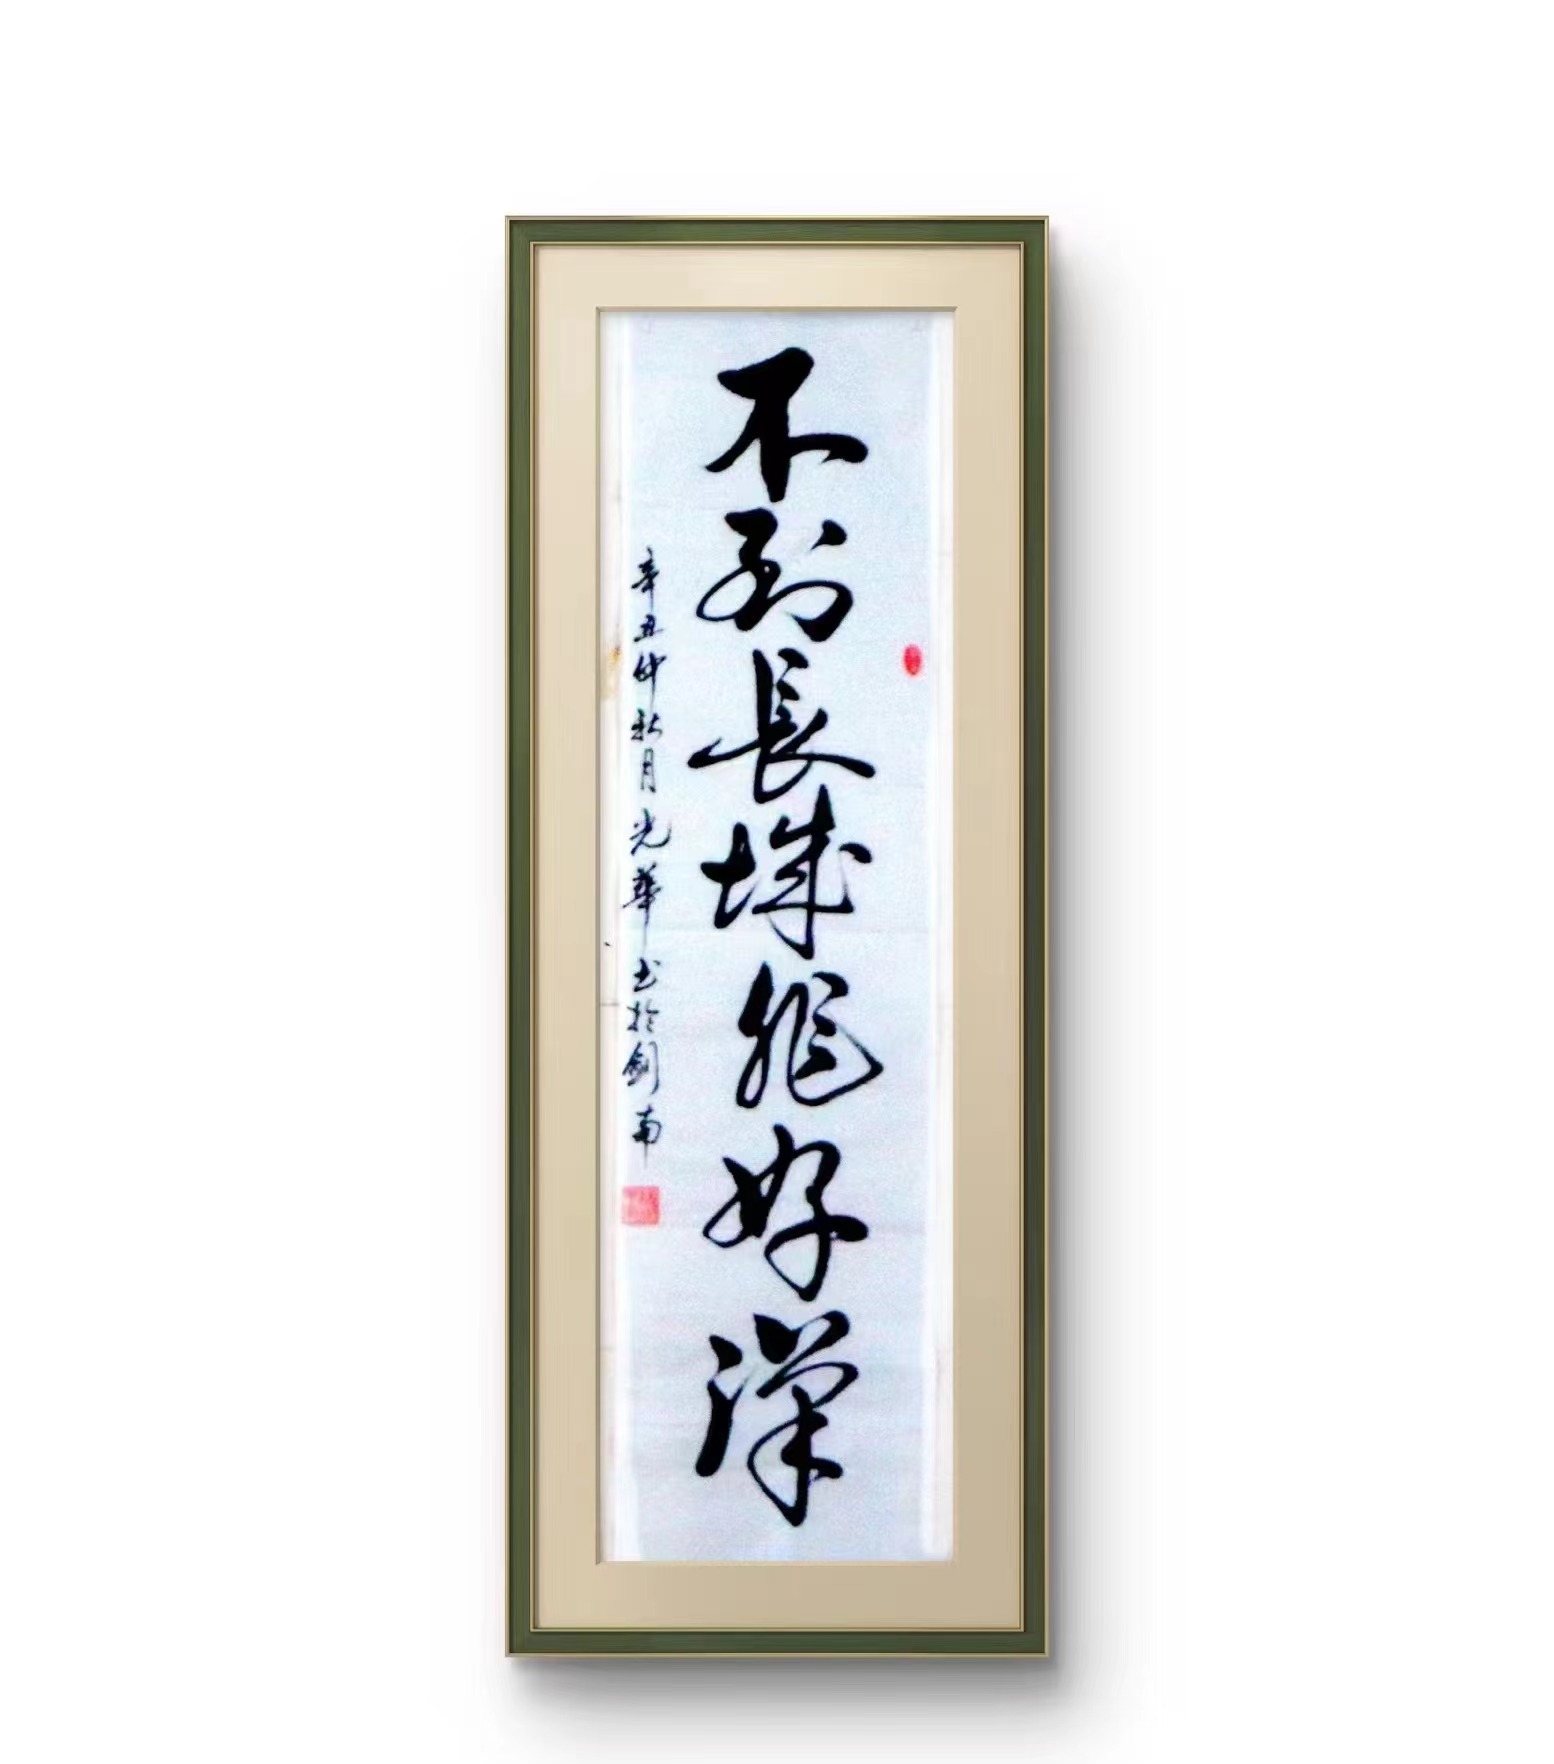 不到長城非好漢
辛丑仲秋月光華书於劍南